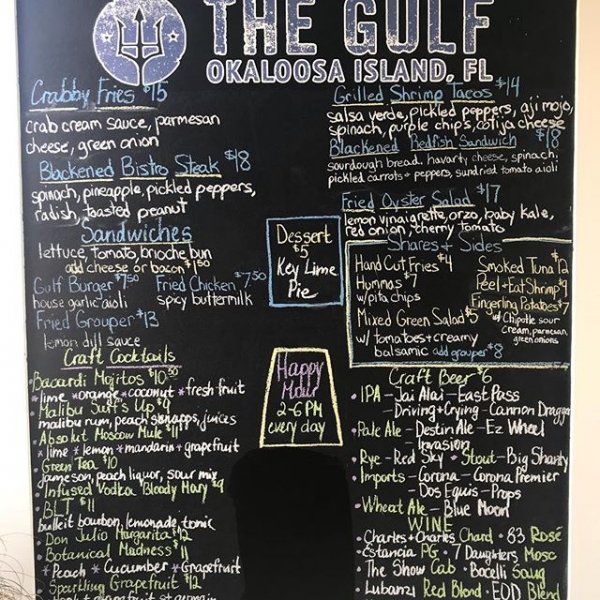 THE GULF
OKALOOSA ISLAND, FL
Crabby Fries $15
crab cream sauce, parmesan
cheese, green onion
Blackened Bistro Steak $18
spinach, pineapple, pickled peppers,
radish, toasted peanut
Sandwiches
lettuce, tomato, brioche bun
add cheese or bacon $1.50
Gulf Burger $7.50
house garlic aioli
Fried Chicken $7.50
spicy buttermilk
Fried Grouper $13
lemon dill sauce
Craft Cocktails
Bacardi Mojitos $10.50
*lime *orange *coconut *fresh fruit
Malibu Surf's Up $9
malibu rum, peach schnapps, juices
Absolut Moscow Mule $11
*lime *lemon *mandarin *grapefruit
Green Tea $10
jameson, peach liquor, sour mix
Infused Vodka Bloody Mary $9
BLT $11
bulleit bourbon, lemonade, tonic
Don Julio Margarita $12
Botanical Madness $11
*Peach *Cucumber *Grapefruit
Sparkling Grapefruit $12
grapefruit, st germain
Dessert
$5
Key Lime
Pie
Happy
Hour
2-6 PM
every day
Grilled Shrimp Tacos $14
salsa verde, pickled peppers, aji mojo,
spinach, purple chips, cotija cheese
Blackened Redfish Sandwich $18
sourdough bread, havarti cheese, spinach,
pickled carrots + peppers, sundried tomato aioli
Fried Oyster Salad $17
lemon vinaigrette, orzo, baby kale,
red onion, cherry tomato
Shares + Sides
Hand Cut Fries $4
Hummas $7
w/ pita chips
Mixed Green Salad $5
w/ tomatoes + creamy
balsamic add grouper $8
Smoked Tuna $12
Peel + Eat Shrimp $9
Fingerling Potatoes $7
w/ Chipotle sour
cream, parmesan,
green onions
Craft Beer $6
• IPA - Jai Alai - East Pass
- Driving + Crying - Cannon Dragger
• Pale Ale - Destin Ale - Ez Wheel
- Invasion
• Rye - Red Sky • Stout - Big Shanty
• Imports - Corona - Corona Premier
- Dos Equis - Props
• Wheat Ale - Blue Moon
WINE
• Charles + Charles Chard • 83 Rosé
• Estancia PG • 7 Daughters Mosc
• The Show Cab • Bocelli Sauq
• Lubanzi Red Blend • EOD Blend